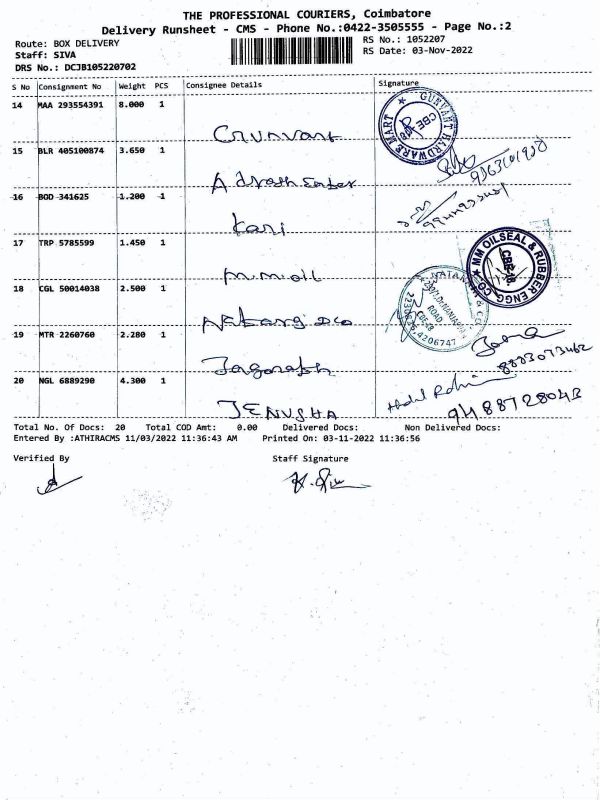 THE PROFESSIONAL COURIERS, Coimbatore
Delivery Runsheet - CMS - Phone No.:0422-3505555 - Page No.:2
Route: BOX DELIVERY
RS No.: 1052207
Staff: SIVA
RS Date: 03-Nov-2022
DRS No.: DCJB105220702
S No Consignment No Weight PCS Consignee Details Signature
14 MAA 293554391 8.000 1
GURVANT HARDWARE MART
CBE
15 BLR 405100874 3.650 1
16 BOD 341625 1.200 1
Kari
17 TRP 5785599 1.450 1
M.M.oil
MM OILSEAL & RUBBER ENGG. CO
CBE-18
18 CGL 50014038 2.500 1
ROAD
CBE-18
4206747
19 MTR 2260760 2.280 1
20 NGL 6889290 4.300 1
JENUSHA
9488728043
Total No. Of Docs: 20 Total COD Amt: 0.00 Delivered Docs: Non Delivered Docs:
Entered By :ATHIRACMS 11/03/2022 11:36:43 AM Printed On: 03-11-2022 11:36:56
Verified By Staff Signature